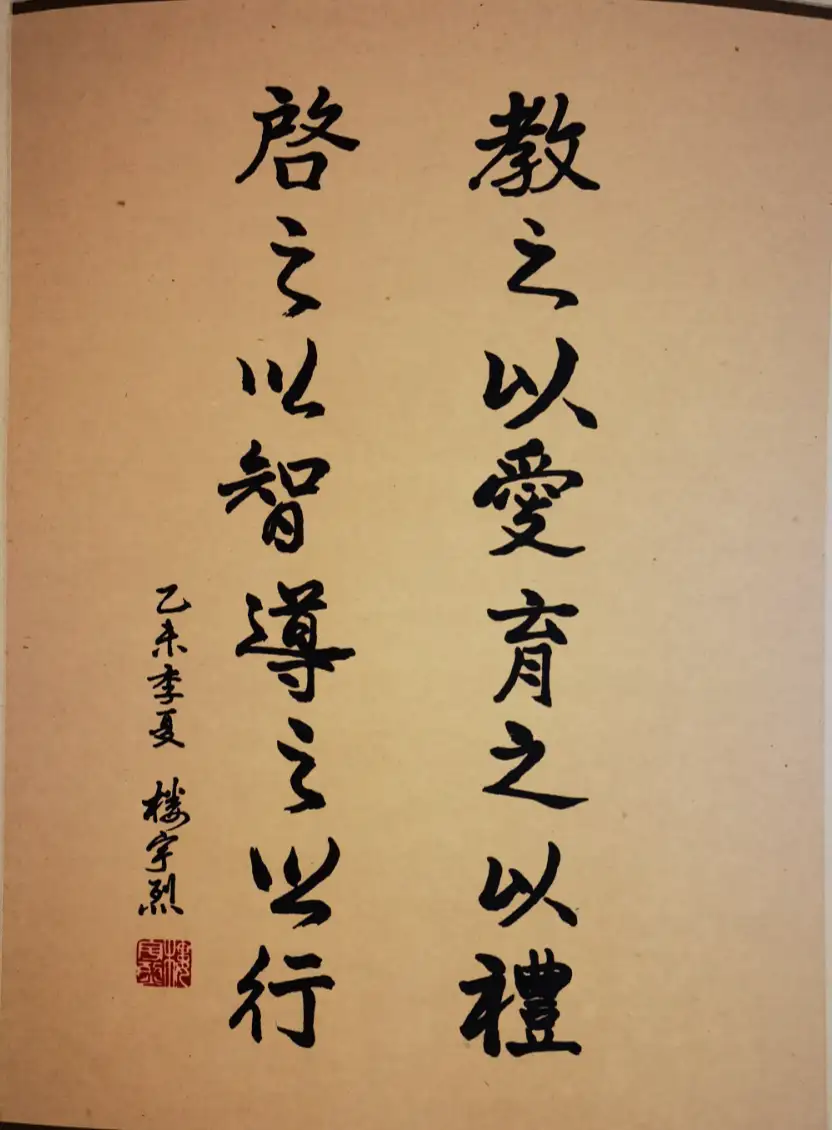 教之以愛育之以禮
啓之以智導之以行
乙未季夏 楼宇烈